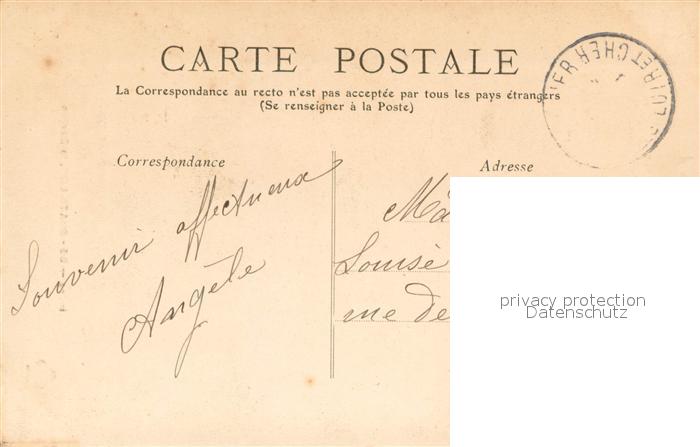 CARTE POSTALE
La Correspondance au recto n'est pas acceptée par tous les pays étrangers
(Se renseigner à la Poste)
LOIR ET CHER
Correspondance
Adresse
Souvenir affectueux
Angèle
Louise
rue de
privacy protection
Datenschutz